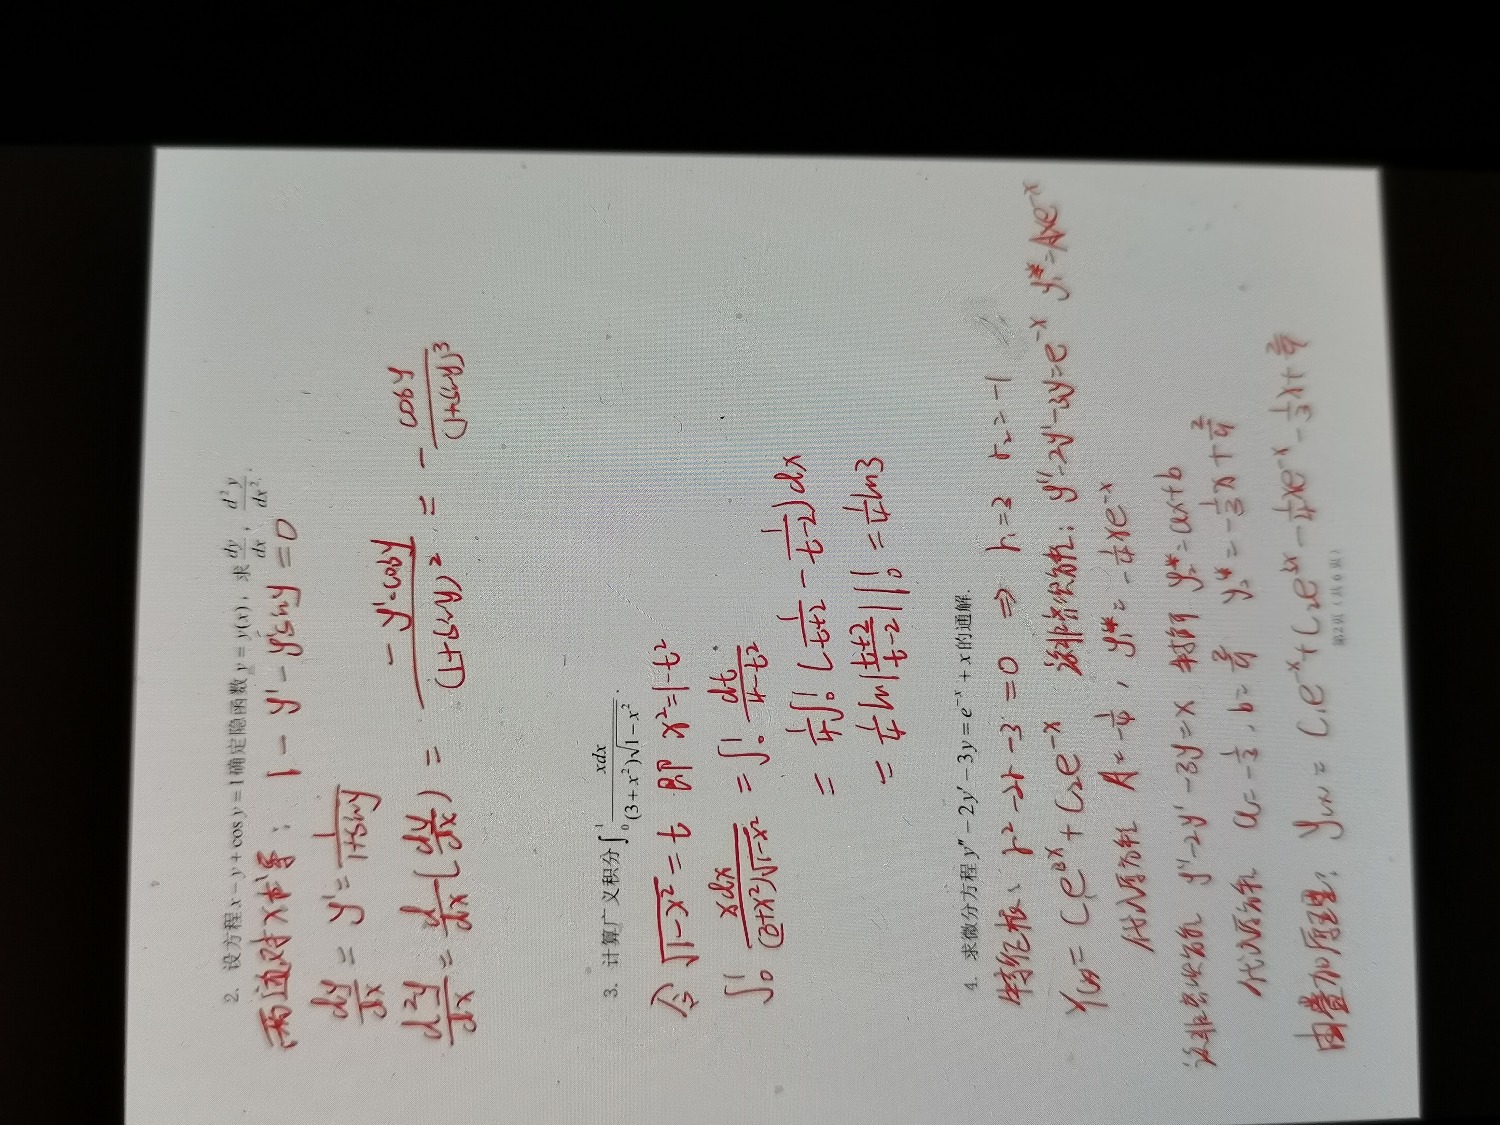 2. 设方程 x − y + cos y = 1 确定隐函数 y = y(x), 求 dy/dx, d²y/dx².
两边对x求导: 1 - y' - y'siny = 0
dy/dx = y' = 1/(1+siny)
d²y/dx = d/dx(dy/dx) = -y'·cosy/(1+siny)² = -cosy/(1+siny)³
3. 计算广义积分 ∫₀¹ xdx/((3+x²)√(1−x²)).
令 √(1-x²) = t 即 x²=1-t²
∫₀¹ xdx/((3+x²)√(1-x²)) = ∫₀¹ dt/(4-t²)
= 1/4∫₀¹(1/(t+2) - 1/(t-2))dx
= 1/4 ln|(t+2)/(t-2)||₀¹ = 1/4 ln3
4. 求微分方程 y″ − 2y′ − 3y = e⁻ˣ + x 的通解.
特征根: r²-2r-3=0 ⇒ r₁=3 r₂=-1
Y(x) = C₁e³ˣ + C₂e⁻ˣ 该非齐次方程: y''-2y'-3y=e⁻ˣ y₁*=Axe⁻ˣ
代入原方程 A=-1/4, y₁*=-1/4xe⁻ˣ
该非齐次方程 y''-2y'-3y=x 特解 y₂*=ax+b
代入原方程 a=-1/3, b=2/9 y₂*=-1/3x+2/9
由叠加原理: y(x) = C₁e⁻ˣ+C₂e³ˣ-1/4xe⁻ˣ-1/3x+2/9
第2页(共6页)